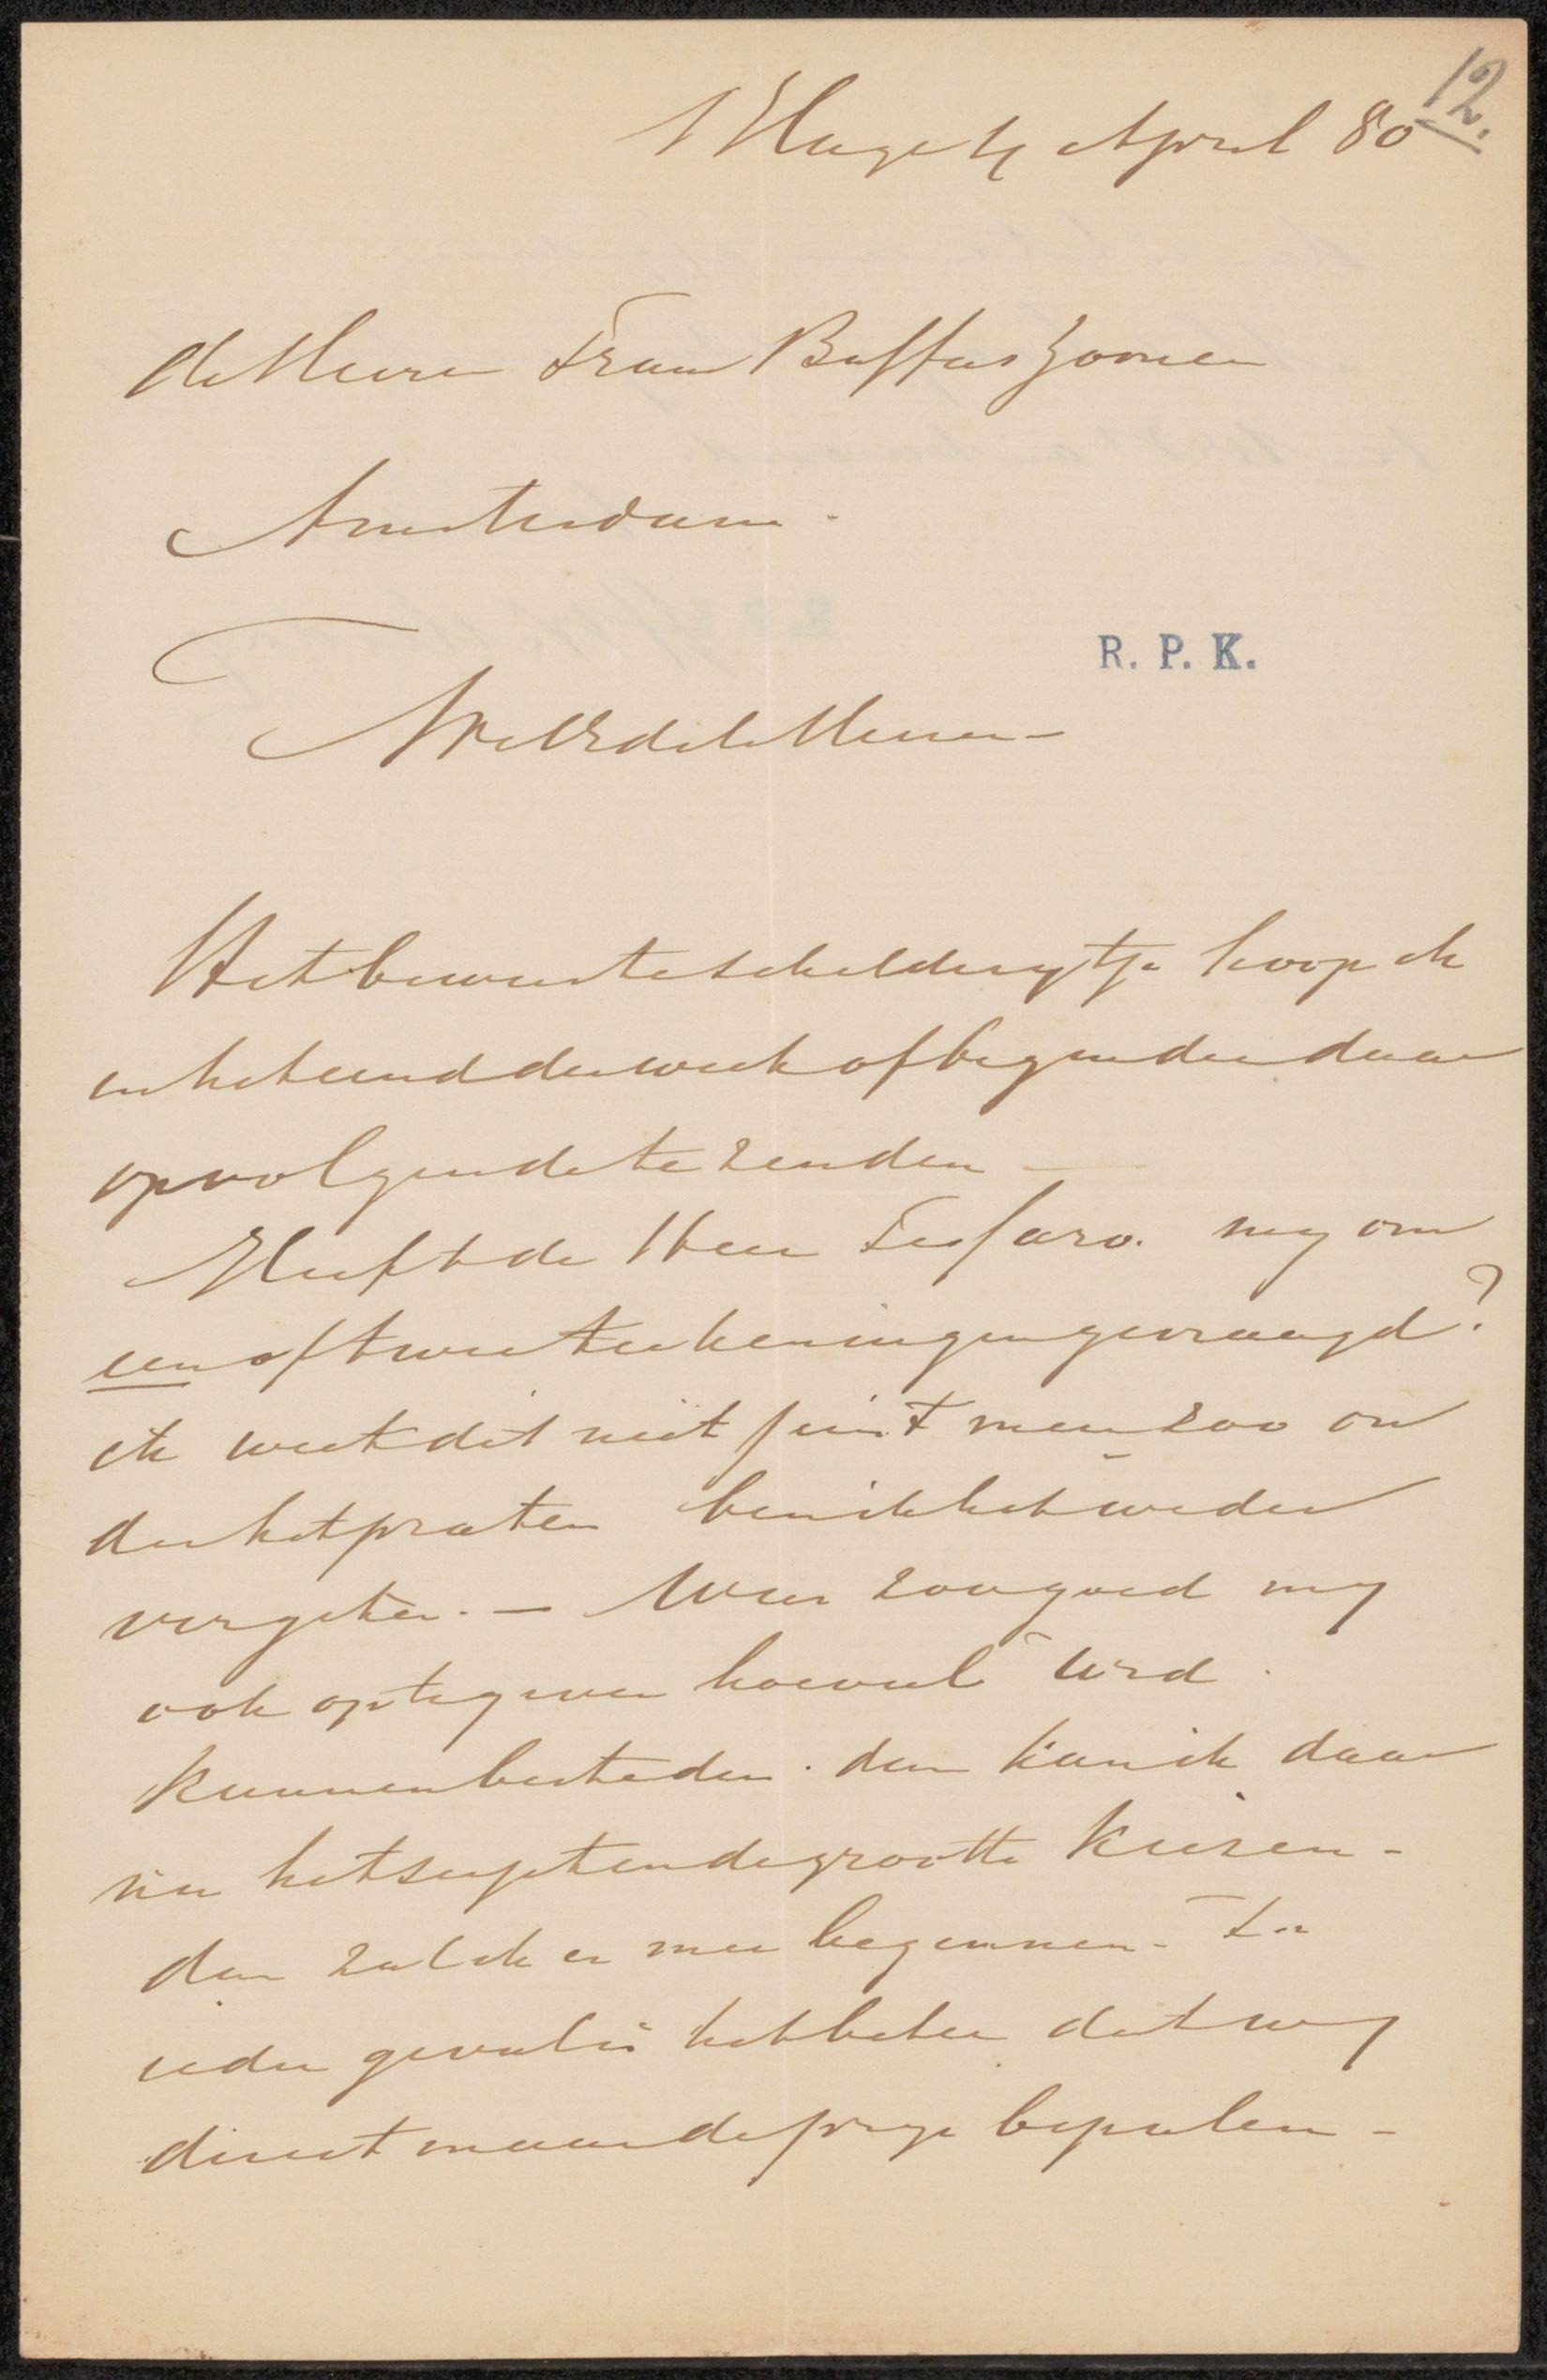 12.
'sHage 4 April 80
de Heeren Frans Buffa & Zonen
Amsterdam.
R. P. K.
WelEdele Heeren
Het bewuste schilderytje hoop ik
in het eind der week of begin der daar
opvolgende te zenden —
Heeft de Heer my om
een of twee teekeningen gevraagd?
ik weet dit niet juist meer zoo on
der het praten ben ik het weder
vergeten. — Wees zoo goed my
ook op te geven hoeveel
kunnen besteden. dan kan ik daar
na het sujet en de grootte kiezen -
dan zal ik er mee beginnen - In
ieder geval is het beter dat wy
direct maar de prys bepalen -